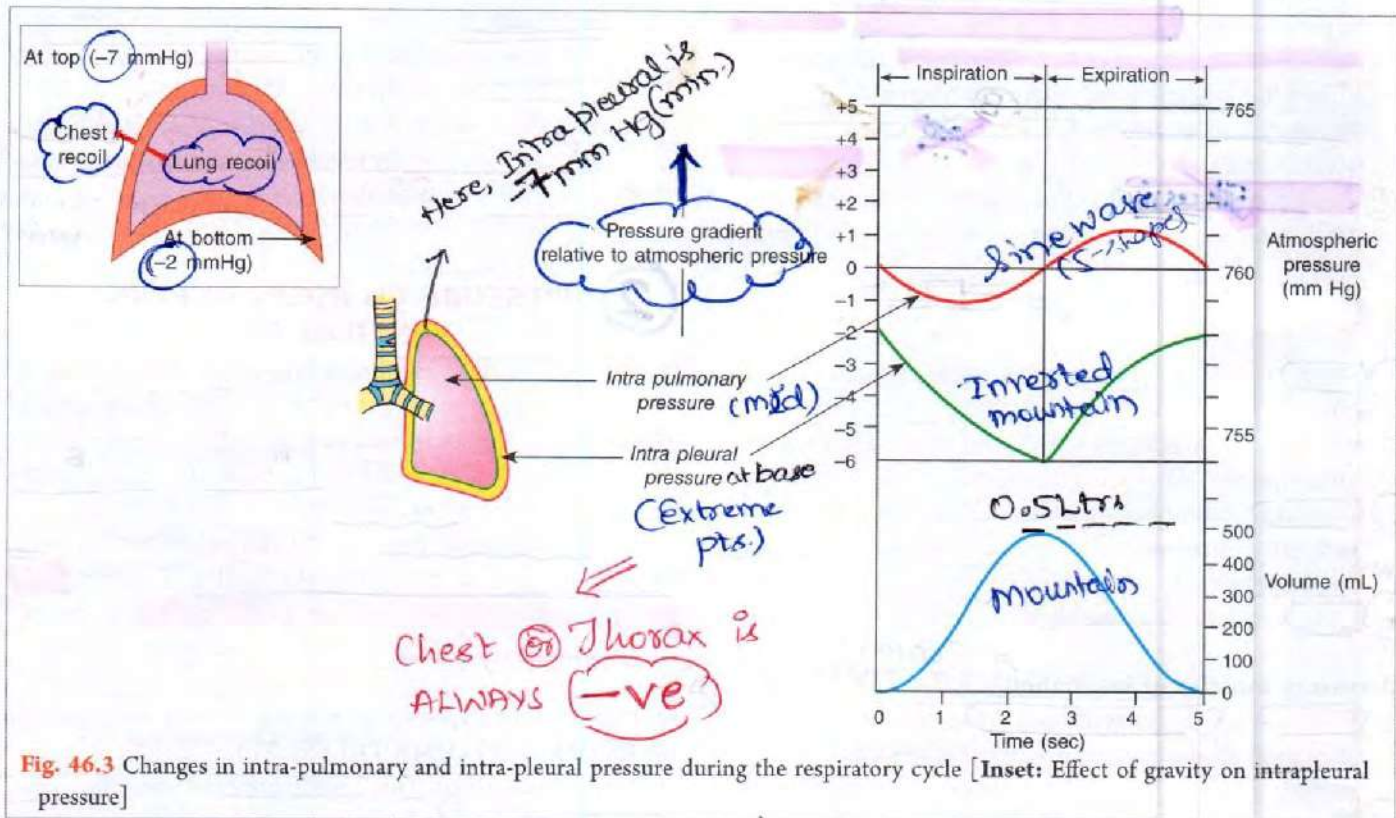 At top (-7 mmHg)
Chest
recoil
Lung recoil
At bottom
(-2 mmHg)
Here, Intra pleural is
-7 mm Hg (min.)
Pressure gradient
relative to atmospheric pressure
Intra pulmonary
pressure (mid)
Intra pleural
pressure at base
(Extreme
pts.)
Chest or Thorax is
ALWAYS -ve
Inspiration
Expiration
+5
+4
+3
+2
+1
0
-1
-2
-3
-4
-5
-6
765
760
755
Atmospheric
pressure
(mm Hg)
Sinewave
(S-shape)
Inverted
mountain
0.5Ltrs
Mountain
500
400
300
200
100
0
Volume (mL)
0 1 2 3 4 5
Time (sec)
Fig. 46.3 Changes in intra-pulmonary and intra-pleural pressure during the respiratory cycle [Inset: Effect of gravity on intrapleural
pressure]